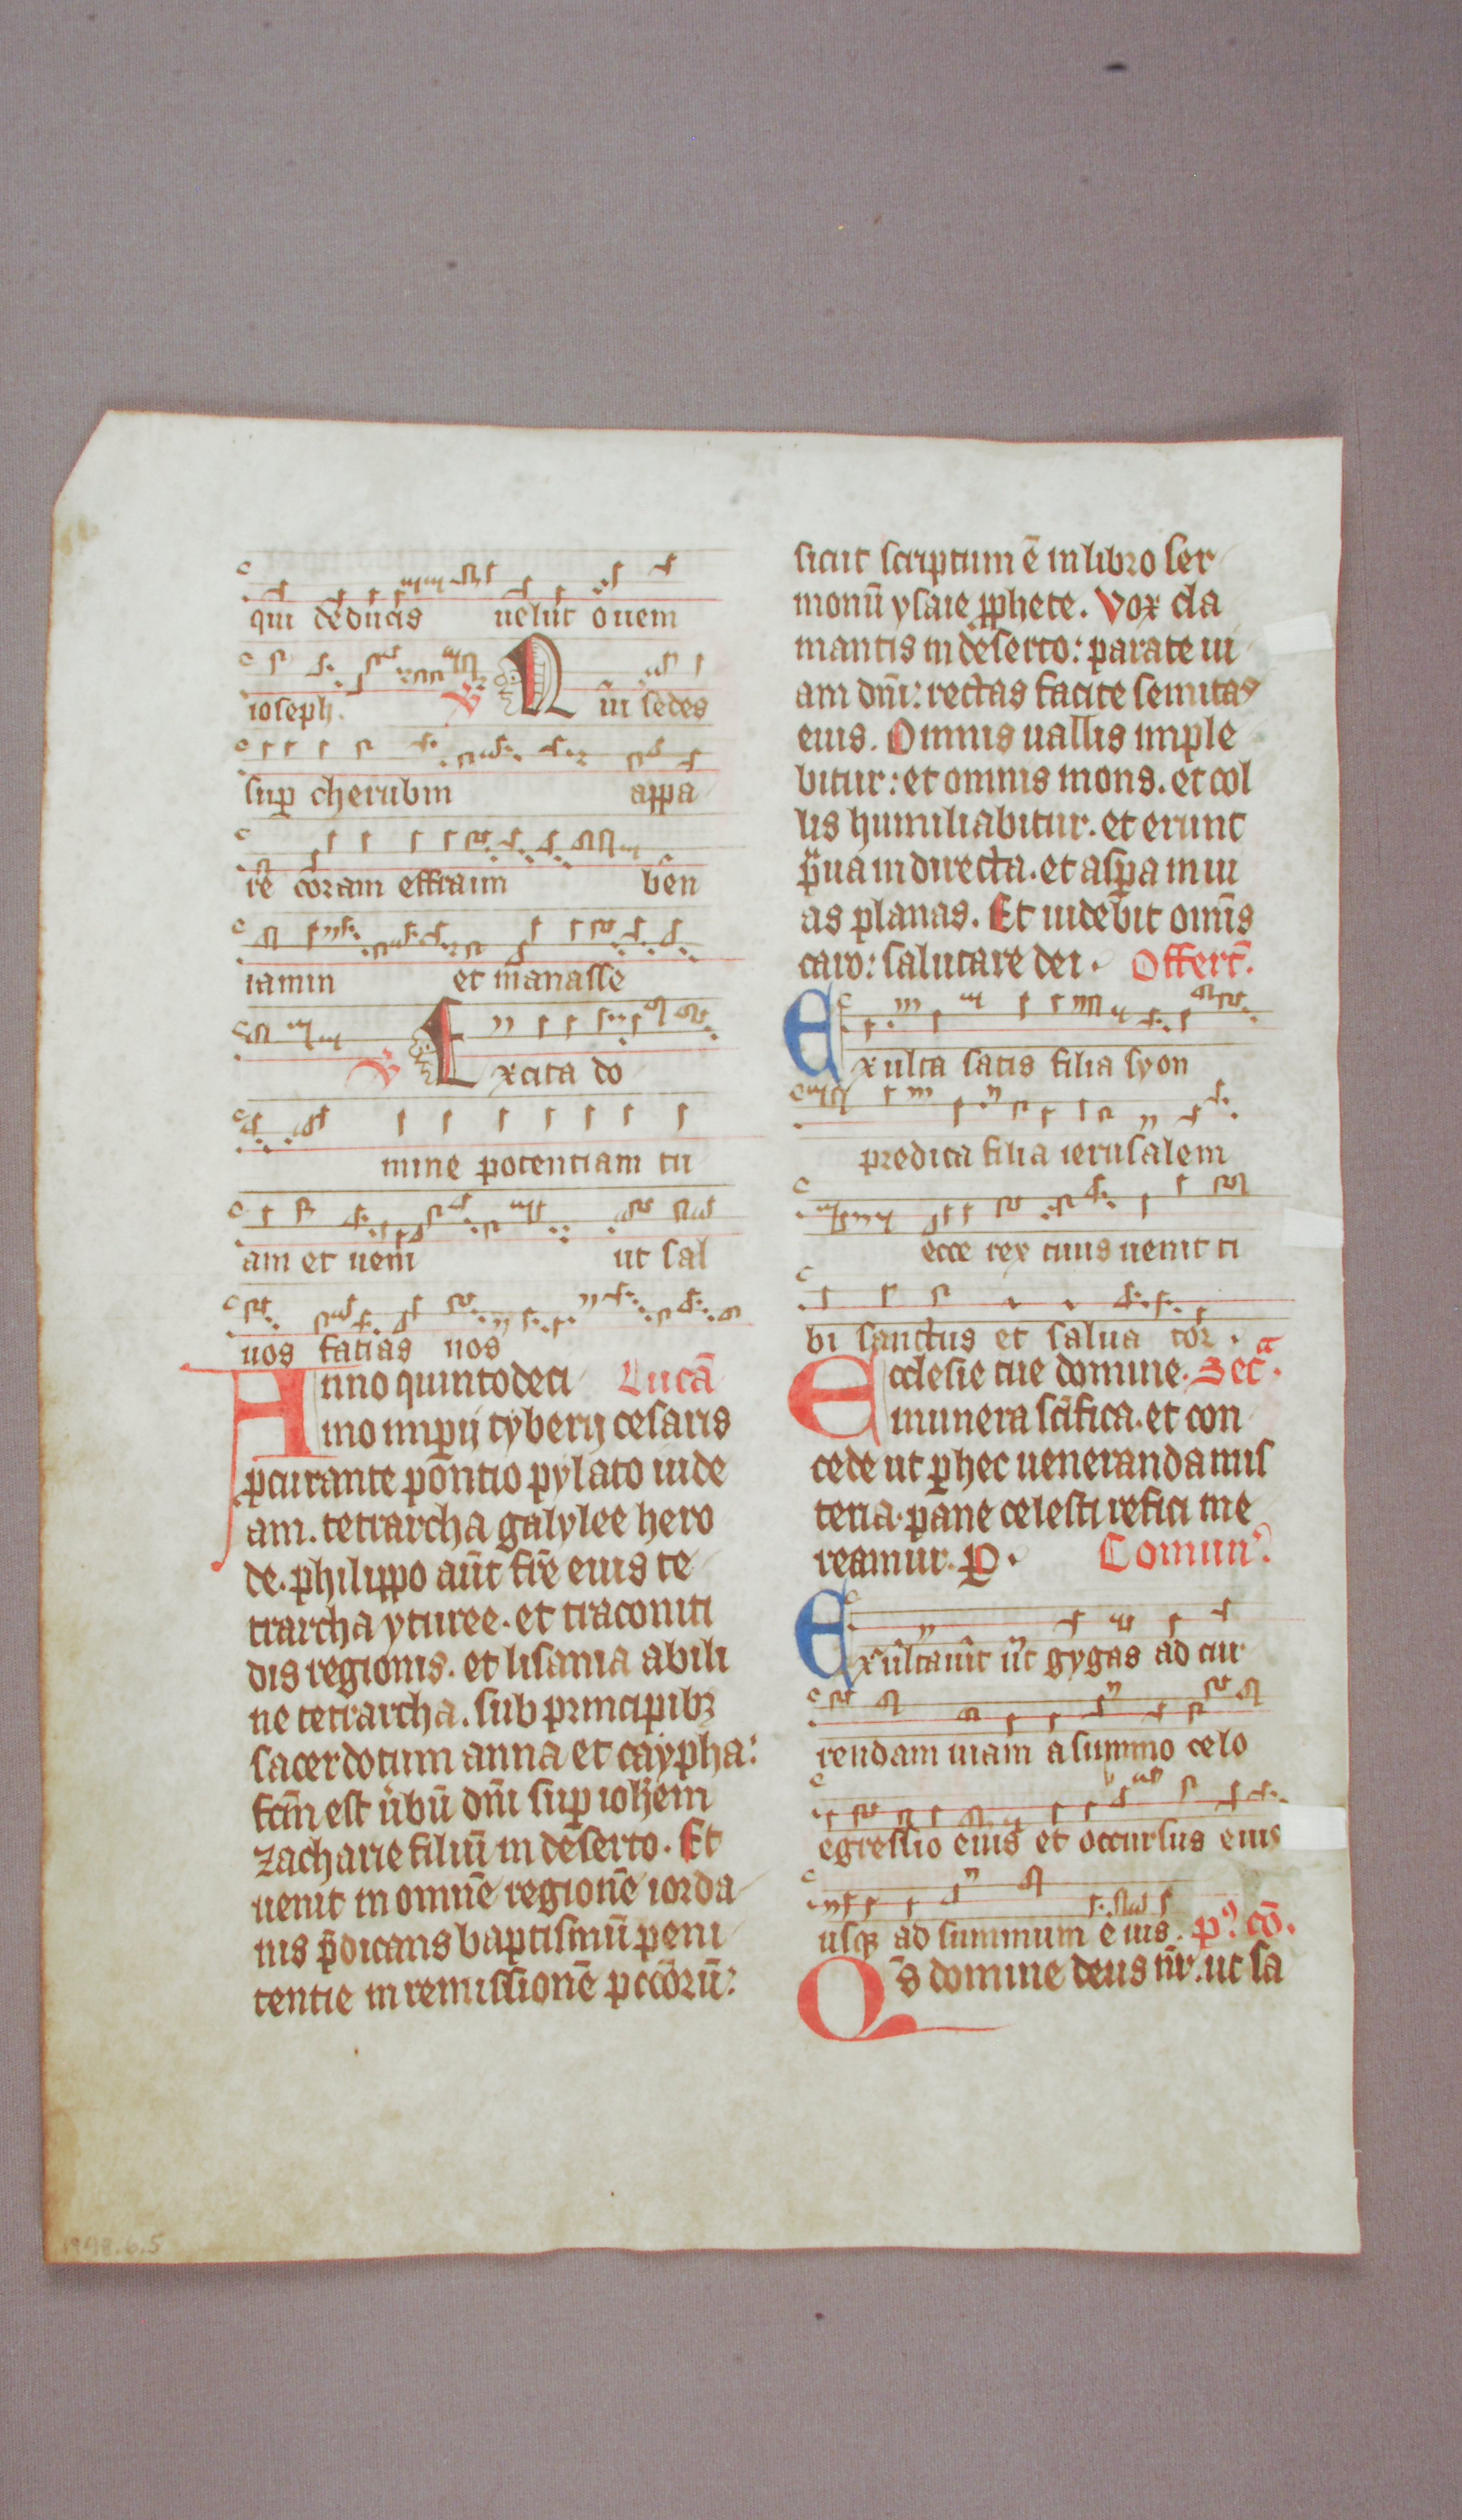 qui deducis uelut ouem
ioseph. V Qui sedes
sup cherubin appa
re coram effraim ben
iamin et manasse
V Excita do
mine potentiam tu
am et ueni ut sal
uos facias nos
Anno quintodeci Lucā
mo imp̄ij tyberij cesaris
pcurante pontio pylato iude
am. tetrarcha galylee hero
de. philippo aūt fr̄e eius te
trarcha yturee. et traconiti
dis regionis. et lisania abili
ne tetrarcha. sub principibꝫ
sacerdotum anna et caypha:
fcm̄ est ūbū dn̄i sup ioh̄em
zacharie filiū in deserto. Et
uenit in omnē regionē iorda
nis p̄dicans baptismū peni
tentie in remissionē pccōrū:
sicut scriptum ē in libro ser
monū ysaie ꝓphete. Vox cla
mantis in deserto: parate ui
am dn̄i: rectas facite semitas
eius. Omnis uallis imple
bitur: et omnis mons. et col
lis humiliabitur. et erunt
p̄ua in directa. et aspa in ui
as planas. Et uidebit omīs
caro: salutare dei. Offert̄.
Exulta satis filia syon
predica filia ierusalem
ecce rex tuus uenit ti
bi sanctus et salua tor.
Ecclesie tue domine. Secᵃ.
munera sc̄ifica. et con
cede ut ꝑ hec ueneranda mis
teria. pane celesti refici me
reamur. ꝑ. Comun᾽.
Exultauit ut gygas ad cur
rendam uiam a summo celo
egressio eius et occursus eius
usqꝫ ad summum eius. p᾽ cō.
Qs̄ domine deus nr̄. ut sa
1998.6.5